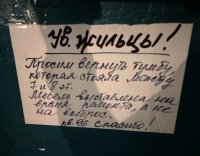 Ув. жильцы!
Просим вернуть тумбу,
которая стояла между
7 и 8 эт.
Мебель выставлена на
время ремонта, а не
на вывоз.
кв. 96 Спасибо!